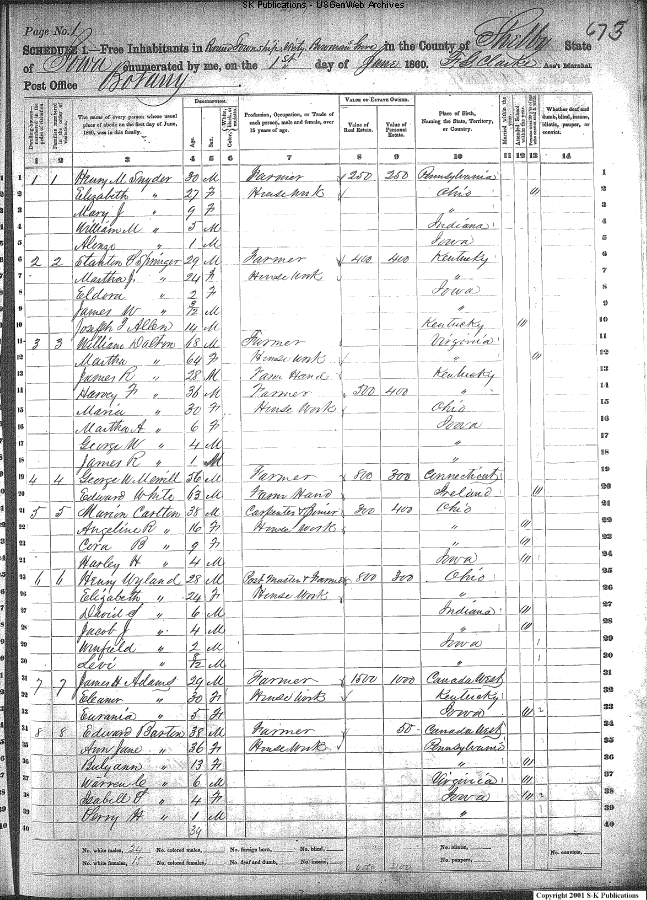 SK Publications - USGenWeb Archives
Page No. 1
675
SCHEDULE 1.—Free Inhabitants in in the County of Shelby State
of Iowa enumerated by me, on the 1st day of June 1860. F G Clarke Ass't Marshal.
Post Office Botany
DESCRIPTION. VALUE OF ESTATE OWNED.
The name of every person whose usual place of abode on the first day of June, 1860, was in this family. Age. Sex. Profession, Occupation, or Trade of each person, male and female, over 15 years of age. Value of Real Estate. Value of Personal Estate. Place of Birth, Naming the State, Territory, or Country. Whether deaf and dumb, blind, insane, idiotic, pauper, or convict.
1 2 3 4 5 6 7 8 9 10 11 12 13 14
1 1 1 Henry M Snyder 30 M Farmer 250 250 Pennsylvania 1
2 Elizabeth " 27 F House Work Ohio 2
3 Mary J " 9 F " 3
4 William M " 3 M Indiana 4
5 Alonzo " 1 M Iowa 5
6 2 2 Springer 29 M Farmer 400 400 Kentucky 6
7 Martha J " 24 F House Work " 7
8 Eldora " 2 F Iowa 8
9 James W " M " 9
10 Joseph T Allen 14 M Kentucky 10
11 3 3 William Dalton 68 M Farmer Virginia 11
12 Martha " 64 F House Work " 12
13 James R " 28 M Farm Hand Kentucky 13
14 Harvey F " 36 M Farmer 400 " 14
15 Maria " 30 F House Work Ohio 15
16 Martha A " 6 F Iowa 16
17 George W " 4 M " 17
18 James R " 1 M " 18
19 4 4 George W Merrill 56 M Farmer 800 300 Connecticut 19
20 Edward White 63 M Farm Hand Ireland 20
21 5 5 Marion Carlton 38 M Carpenter & Joiner 300 400 Ohio 21
22 Angeline R " 16 F House Work " 22
23 Cora B " 9 F " 23
24 Harley H " 4 M Iowa 24
25 6 6 Henry Wyland 28 M Post Master & Farmer 800 300 Ohio 25
26 Elizabeth " 24 F House Work " 26
27 David S " 6 M Indiana 27
28 Jacob J " 4 M " 28
29 Winfield " 2 M Iowa 29
30 Levi " M " 30
31 7 7 James H Adams 29 M Farmer 1500 1000 Canada West 31
32 Eleanor " 30 F House Work Kentucky 32
33 Eurania " 5 F Iowa 33
34 8 8 Edward Barton 38 M Farmer 50 Canada West 34
35 Ann Jane " 36 F House Work Pennsylvania 35
36 " 13 F " 36
37 Warren C " 6 M Virginia 37
38 Isabell F " 4 F Iowa 38
39 Perry H " 1 M " 39
40 39 40
No. white males, 24 No. colored males, No. foreign born, No. blind, No. idiotic, No. convicts,
No. white females, 15 No. colored females, No. deaf and dumb, No. insane, No. paupers,
Copyright 2001 S-K Publications